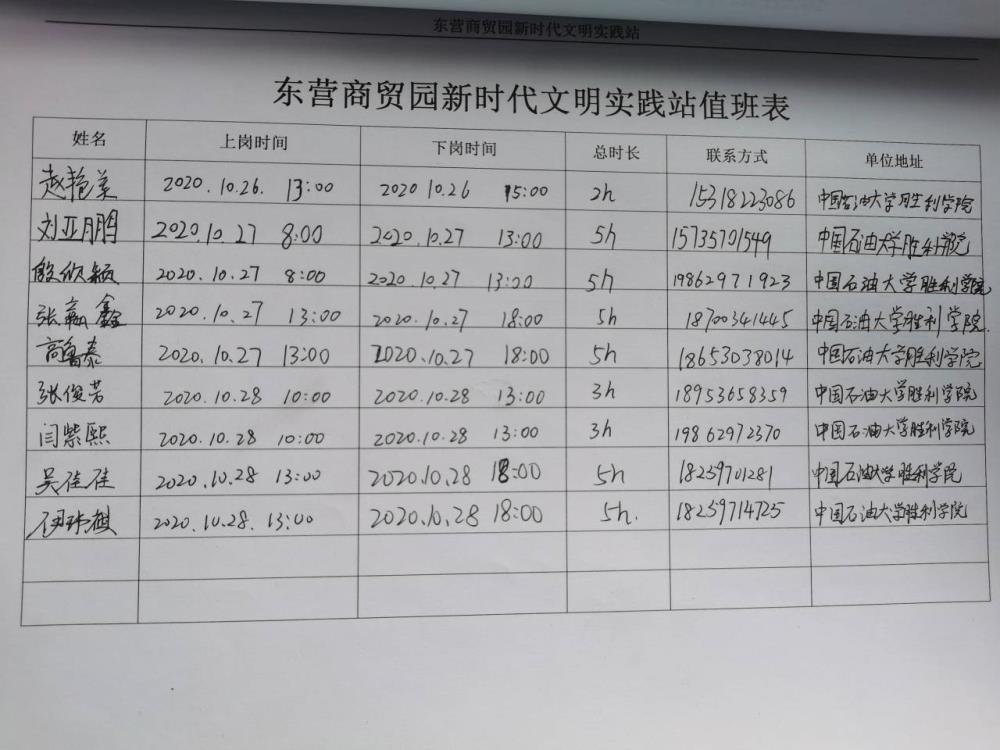 东营商贸园新时代文明实践站
东营商贸园新时代文明实践站值班表
姓名 上岗时间 下岗时间 总时长 联系方式 单位地址
赵艳美 2020.10.26. 13:00 2020 10.26 15:00 2h 15318223086 中国石油大学胜利学院
刘亚鹏 2020.10.27 8:00 2020.10.27 13:00 5h 15735701549 中国石油大学胜利学院
殷欣颖 2020.10.27 8:00 2020.10.27 13:00 5h 19862971923 中国石油大学胜利学院
张赢鑫 2020.10.27 13:00 2020.10.27 18:00 5h 18700341445 中国石油大学胜利学院
高鲁泰 2020.10.27 13:00 2020.10.27 18:00 5h 18653038014 中国石油大学胜利学院
张俊芳 2020.10.28 10:00 2020.10.28 13:00 3h 18953658359 中国石油大学胜利学院
闫紫熙 2020.10.28 10:00 2020.10.28 13:00 3h 19862972370 中国石油大学胜利学院
吴佳佳 2020.10.28 13:00 2020.10.28 18:00 5h 18259701281 中国石油大学胜利学院
2020.10.28. 13:00 2020.10.28 18:00 5h. 18259714725 中国石油大学胜利学院